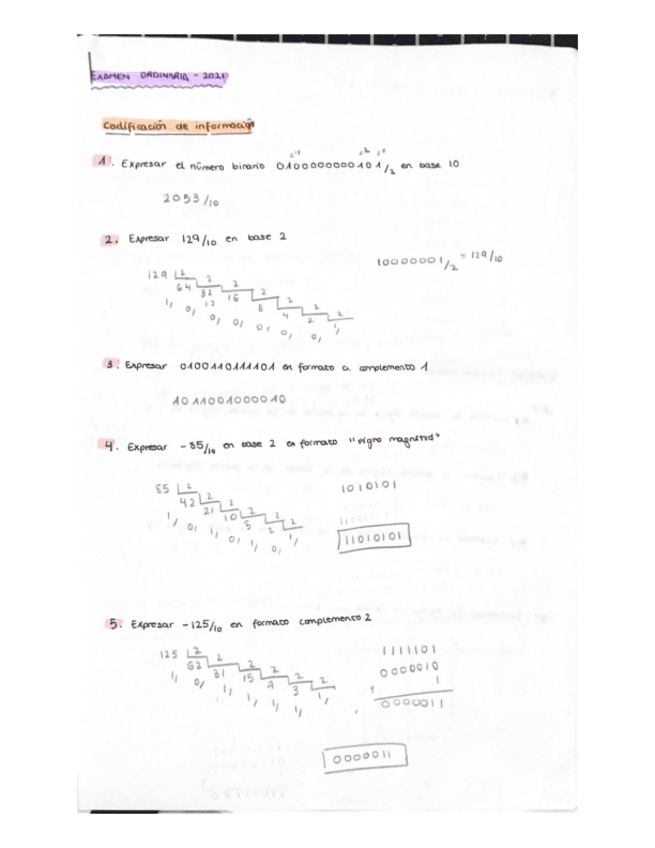 EXAMEN ORDINARIA - 2021
Codificación de información
1. Expresar el número binario 0100000000101/2 en base 10
2053/10
2. Expresar 129/10 en base 2
10000001/2 = 129/10
129 2
64 2
32 2
16 2
8 2
4 2
2 2
1, 0, 0, 0, 0, 0, 0, 1,
3. Expresar 0100110111101 en formato a complemento 1
1011001000010
4. Expresar -85/10 en base 2 en formato "signo magnitud"
85 2
42 2
21 2
10 2
5 2
2 2
1, 0, 1, 0, 1, 0, 1,
1010101
11010101
5. Expresar -125/10 en formato complemento 2
125 2
62 2
31 2
15 2
7 2
3 2
1, 0, 1, 1, 1, 1, 1,
1111101
0000010
+ 1
0000011
0000011